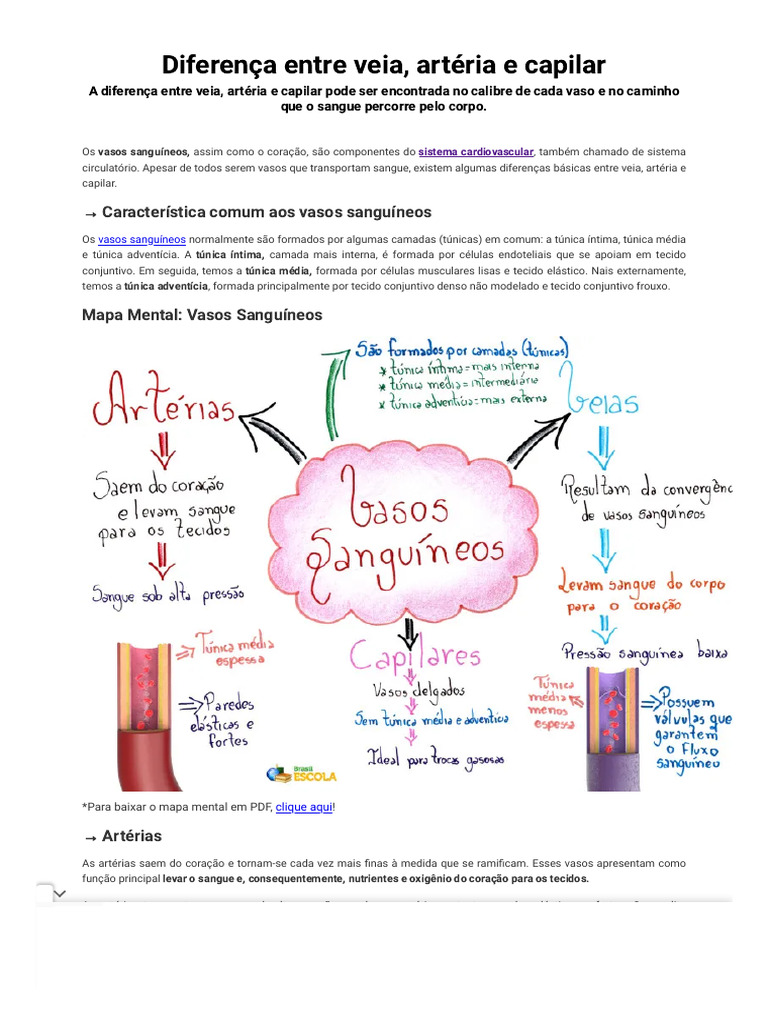 Diferença entre veia, artéria e capilar
A diferença entre veia, artéria e capilar pode ser encontrada no calibre de cada vaso e no caminho
que o sangue percorre pelo corpo.
Os vasos sanguíneos, assim como o coração, são componentes do sistema cardiovascular, também chamado de sistema
circulatório. Apesar de todos serem vasos que transportam sangue, existem algumas diferenças básicas entre veia, artéria e
capilar.
→ Característica comum aos vasos sanguíneos
Os vasos sanguíneos normalmente são formados por algumas camadas (túnicas) em comum: a túnica íntima, túnica média
e túnica adventícia. A túnica íntima, camada mais interna, é formada por células endoteliais que se apoiam em tecido
conjuntivo. Em seguida, temos a túnica média, formada por células musculares lisas e tecido elástico. Nais externamente,
temos a túnica adventícia, formada principalmente por tecido conjuntivo denso não modelado e tecido conjuntivo frouxo.
Mapa Mental: Vasos Sanguíneos
São formados por camadas (túnicas)
* túnica íntima = mais interna
* túnica média = intermediária
* túnica adventícia = mais externa
Artérias
Saem do coração
e levam sangue
para os tecidos
Sangue sob alta pressão
Túnica média
espessa
Paredes
elásticas e
fortes
Vasos
Sanguíneos
Capilares
Vasos delgados
Sem túnica média e adventícia
Ideal para trocas gasosas
Brasil
ESCOLA
Veias
Resultam da convergênc
de vasos sanguíneos
Levam sangue do corpo
para o coração
Pressão sanguínea baixa
Túnica
média
menos
espessa
Possuem
válvulas que
garantem
o fluxo
sanguíneo
*Para baixar o mapa mental em PDF, clique aqui!
→ Artérias
As artérias saem do coração e tornam-se cada vez mais finas à medida que se ramificam. Esses vasos apresentam como
função principal levar o sangue e, consequentemente, nutrientes e oxigênio do coração para os tecidos.